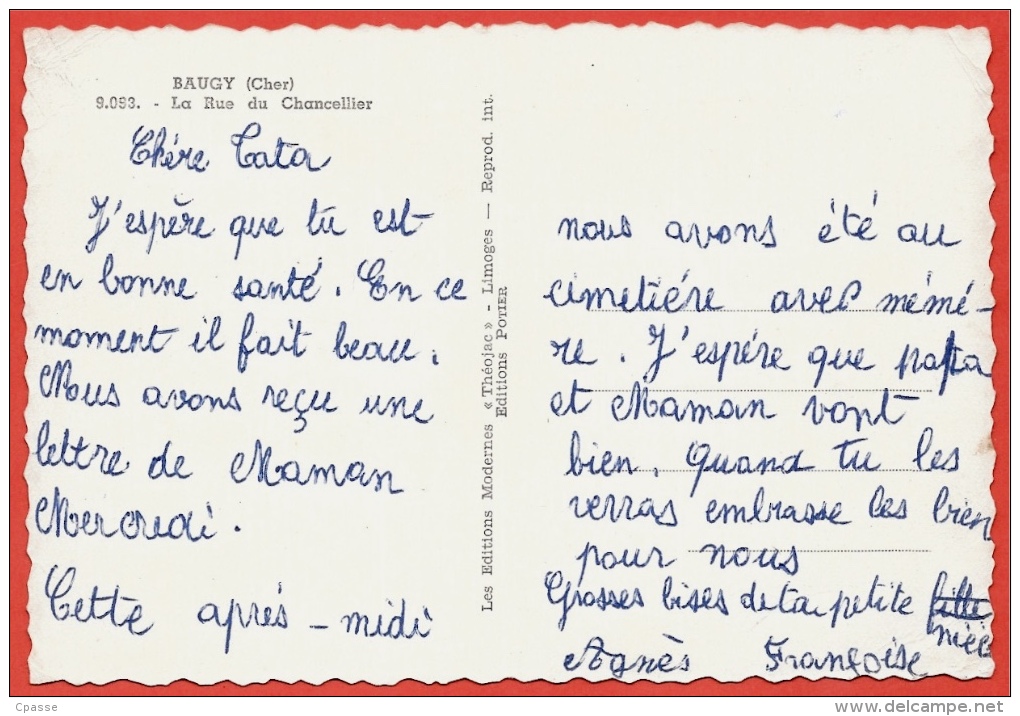 BAUGY (Cher)
9.093. - La Rue du Chancellier
Chére Tata
J'espère que tu est
en bonne santé. En ce
moment il fait beau.
Nous avons reçu une
lettre de Maman
Mercredi.
Cette aprés-midi
Les Editions Modernes « Théojac » - Limoges — Reprod. int.
Editions POTIER
nous avons été au
cimetiére avec mémé-
re. J'espére que papa
et Maman vont
bien. Quand tu les
verras embrasse les bien
pour nous
Grosses bises de ta petite fille
nièce
Agnès Françoise
Cpasse
delcampe.net